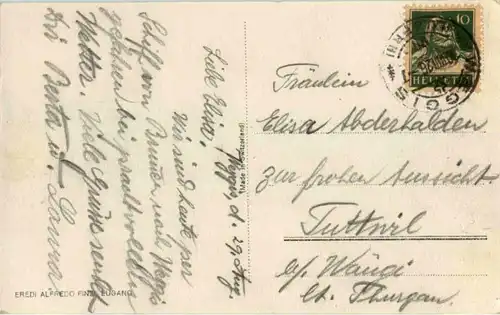 Weggis, d. 29. Aug.
Liebe Elisa!
Wir sind heute per
Schiff von Brunnen nach Weggis
gefahren bei prachtvollem
Wetter. Viele Grüsse sendet
Dir Berta u. Laura
Made in Switzerland
EREDI ALFREDO FINZI, LUGANO
10
HELVETIA
WEGGIS
Fräulein
Elisa Abderhalden
zur frohen Aussicht
Tuttwil
b/. Wängi
Ct. Thurgau.